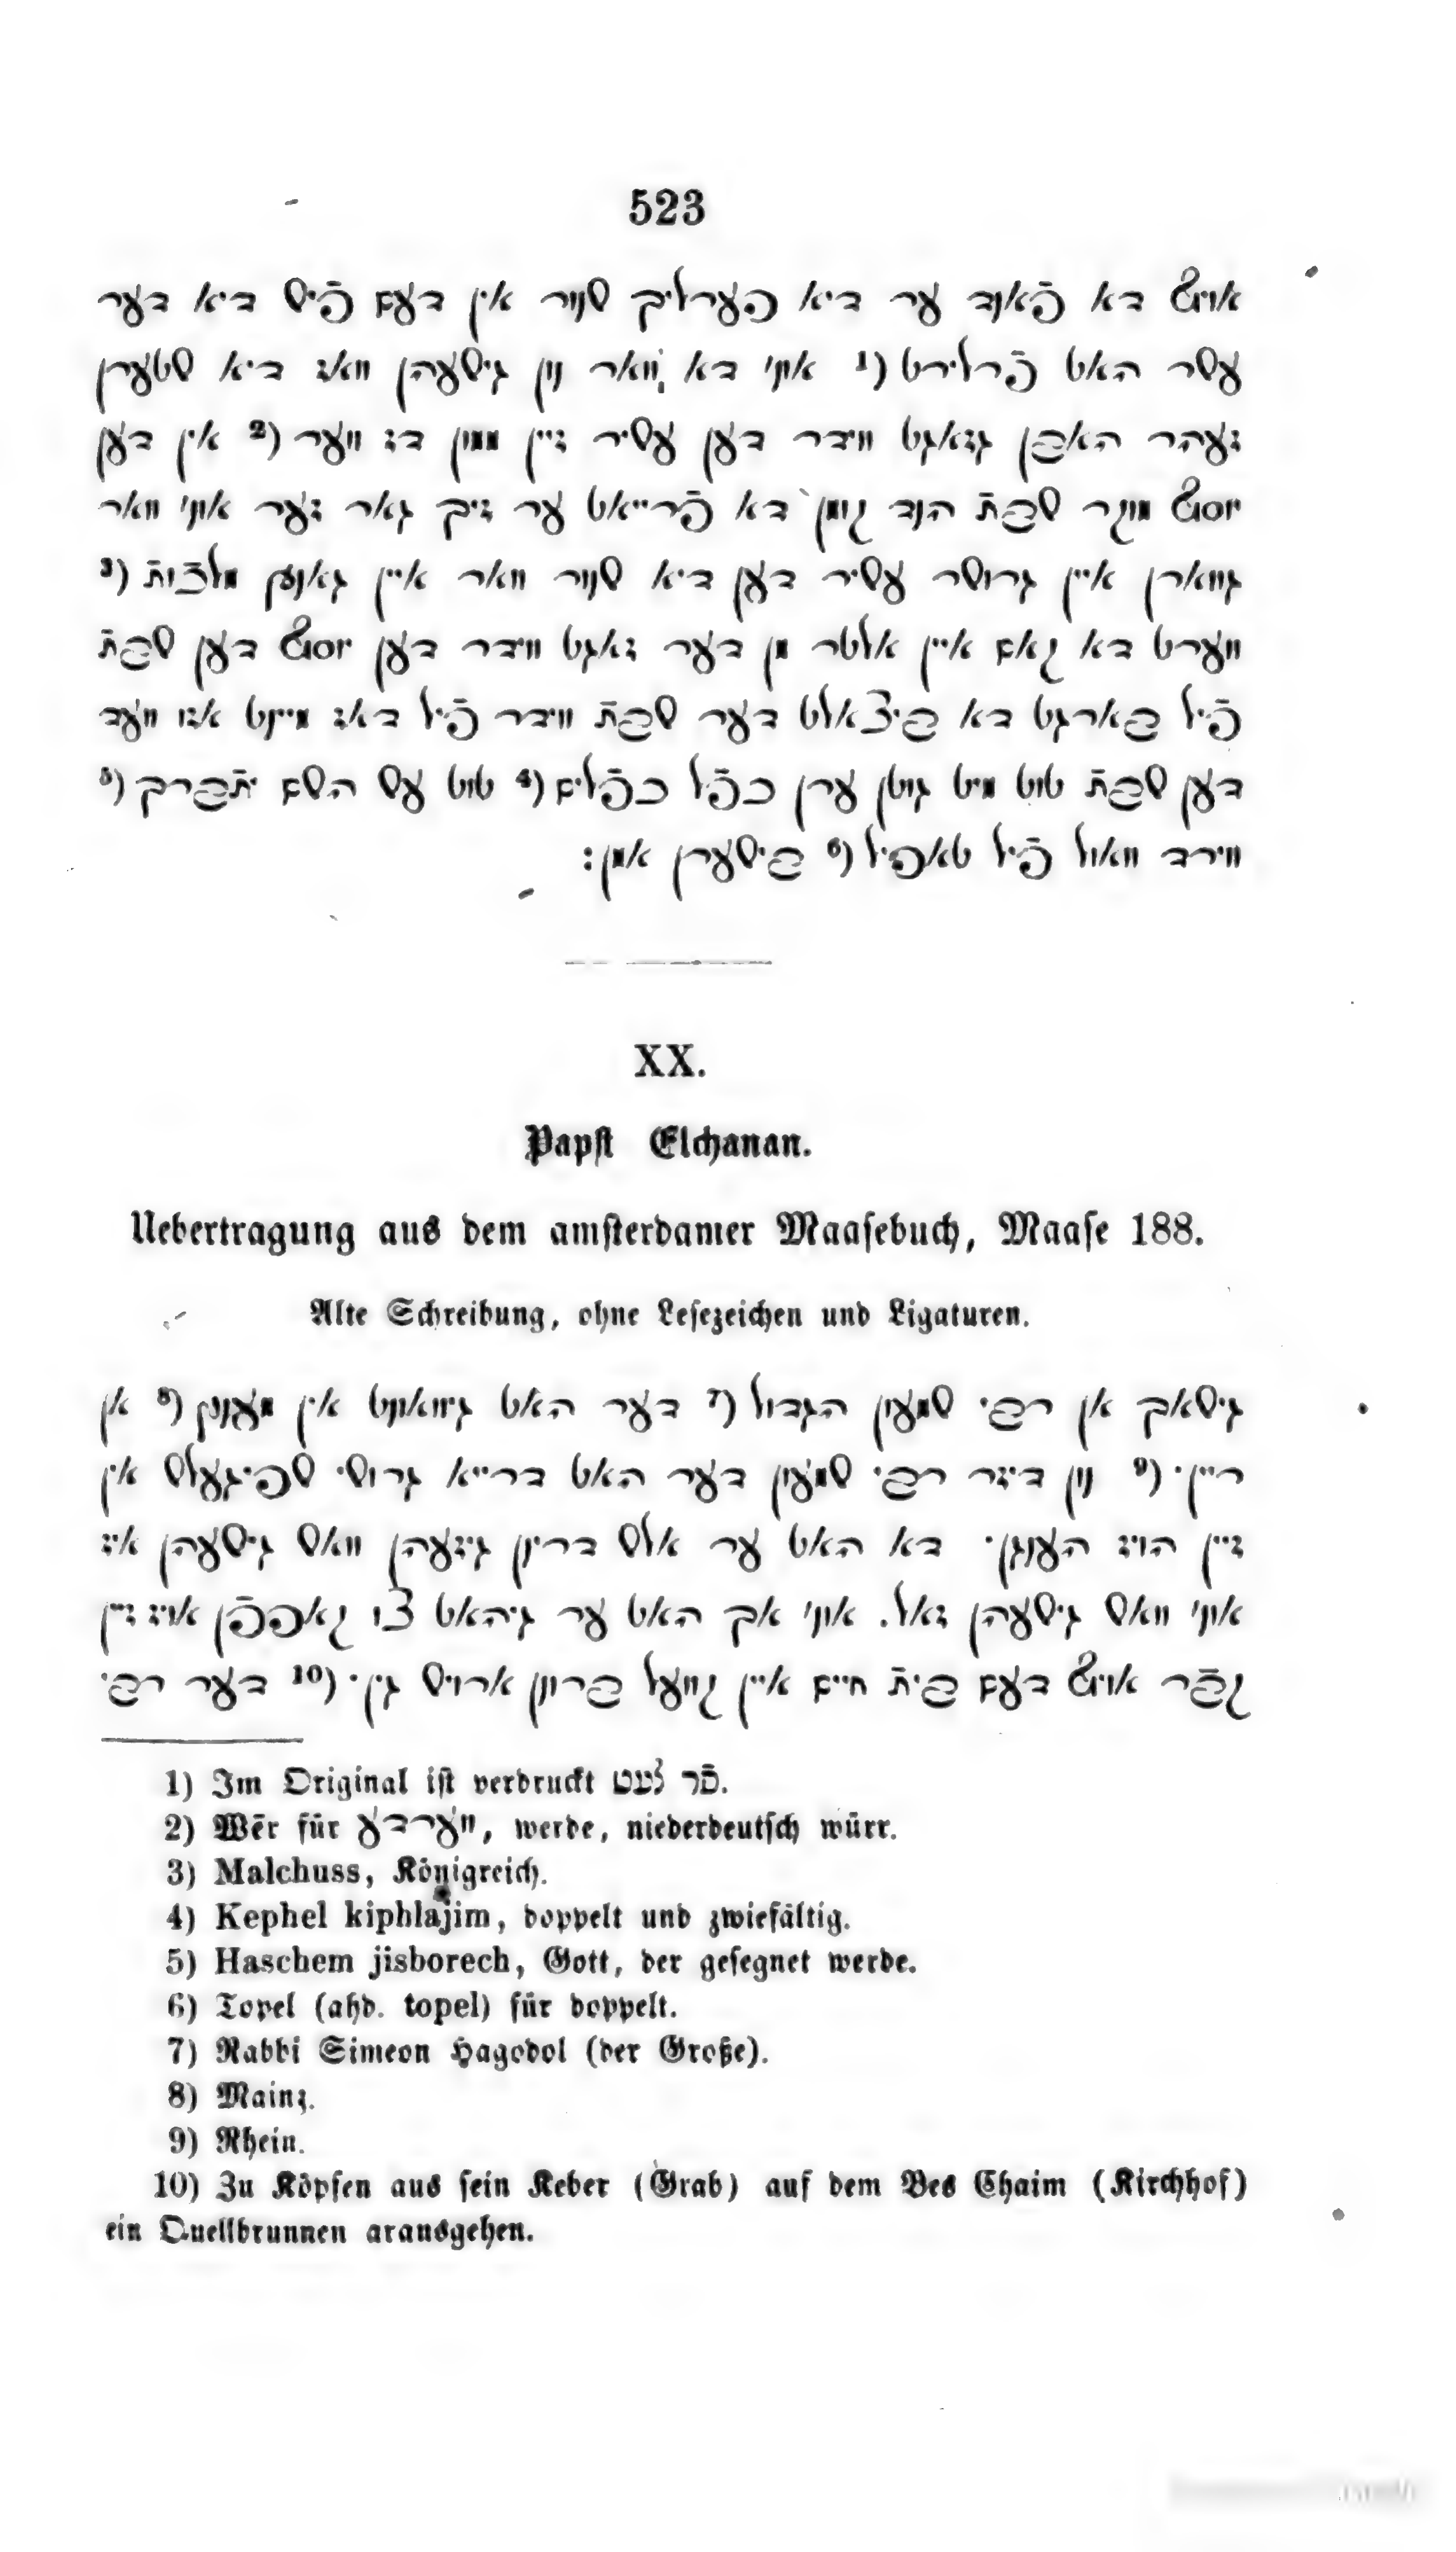 523
אויף דא פֿאנד ער דיא פערליך שנור אין דעם פֿיש דיא דער
עשר האט פֿרלירט (1 אונ' דא וואר נון גישעהן וואז דיא שטערן
זעהר האבן גזאגט ווידר דען עשיר זיין ממון דז ווער (2 אין דען
יוסף מוקר שבת הנד קומן דא פֿרייאט ער זיך גאר זער אונ' וואר
גווארן איין גרושר עשיר דען דיא שנור וואר איין גאנצן מלכֿותֿ (3
ווערט דא קאם איין אלטר מן דער זאגט ווידר דען יוסף דען שבתֿ
פֿיל בארגט דא ביצאלט דער שבתֿ ווידר פֿיל דאז מיינט אזו ווער
דען שבתֿ טוט מיט גוטן ערן כפֿל כפֿלים (4 טוט עש השם יתֿברך (5
ווירד וואול פֿיל טאפיל (6 בישערן אמן:
XX.
Papst Elchanan.
Uebertragung aus dem amsterdamer Maasebuch, Maase 188.
Alte Schreibung, ohne Lesezeichen und Ligaturen.
גישאך אן רבי שמעון הגדול (7 דער האט גוואונט אין מענץ (8 אן
ריין· (9 נון דיזר רבי שמעון דער האט דרייא גרושי שפיגעלש אין
זיין הויז הענגן· דא האט ער אלש דרינן גיזעהן וואש גישעהן איז
אונ' וואש גישעהן זאל. אונ' אך האט ער גיהאט צו קאפפֿן אויז זיין
קבֿר אויף דעם ביתֿ חיים איין קוועל ברונן ארויש גין· (10 דער רבי
1) Im Original ist verdruckt פֿר לעט.
2) Wēr für ווערדע, werde, niederdeutsch würr.
3) Malchuss, Königreich.
4) Kephel kiphlajim, doppelt und zwiefältig.
5) Haschem jisborech, Gott, der gesegnet werde.
6) Topel (ahd. topel) für doppelt.
7) Rabbi Simeon Hagodol (der Große).
8) Mainz.
9) Rhein.
10) Zu Köpfen aus sein Keber (Grab) auf dem Bes Chaim (Kirchhof)
ein Quellbrunnen arausgehen.